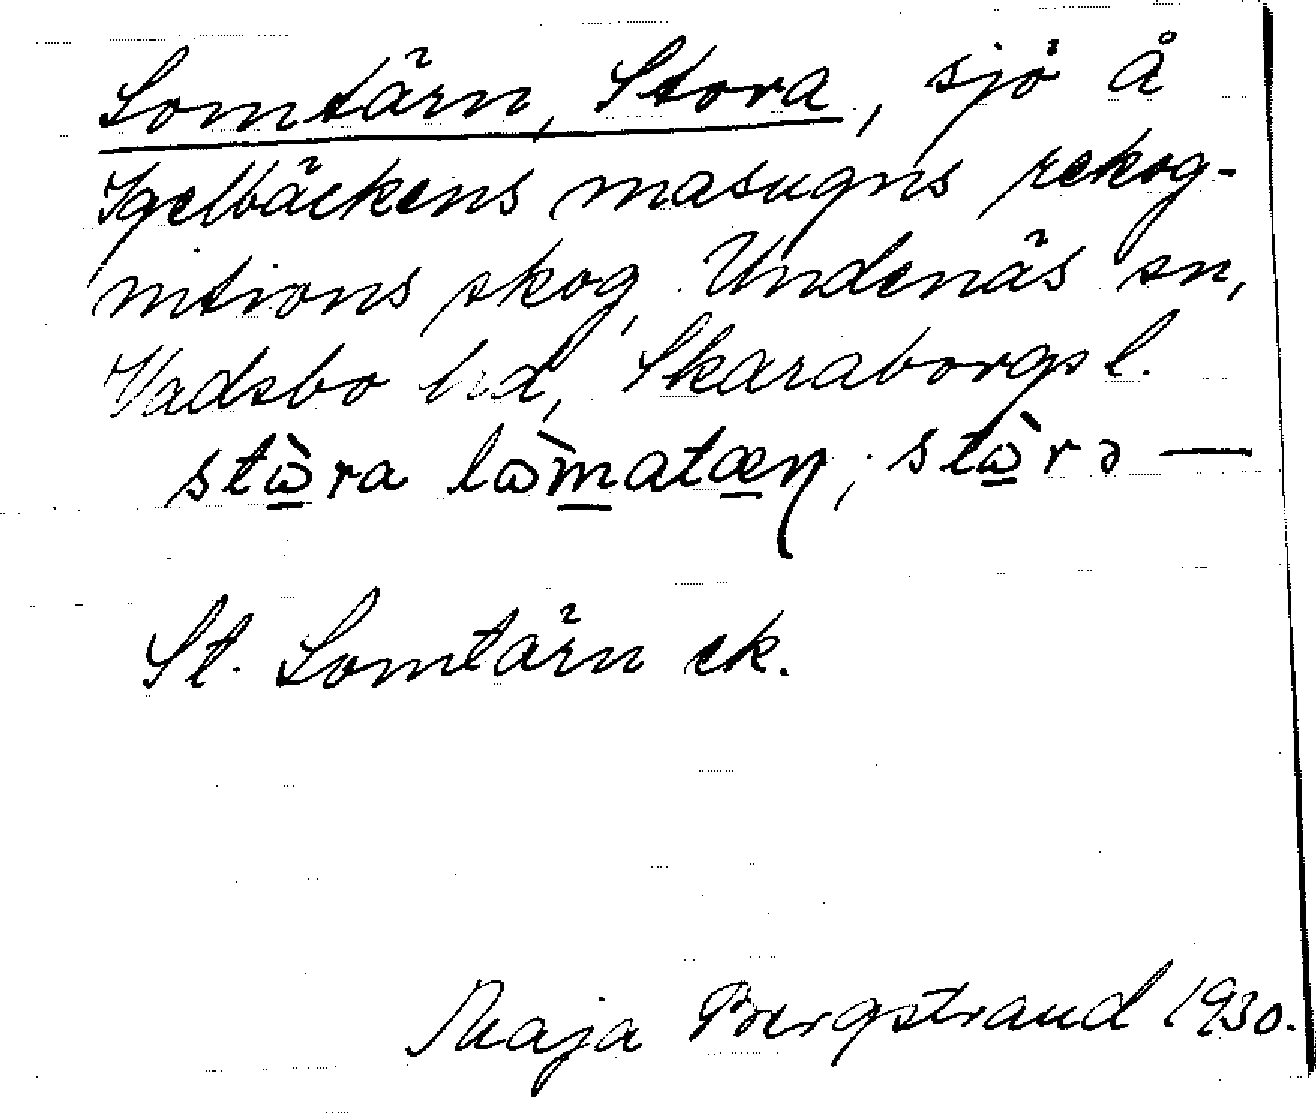 Lomtärn, Stora, sjö å
Igelbäckens masugns rekog-
nitions skog, Undenäs sn,
Vadsbo hd, Skaraborgs l.
stɷ̀ra lɷ̀matæɳ; stɷ̀rə —
St. Lomtärn ek.
Maja Bergstrand 1930.